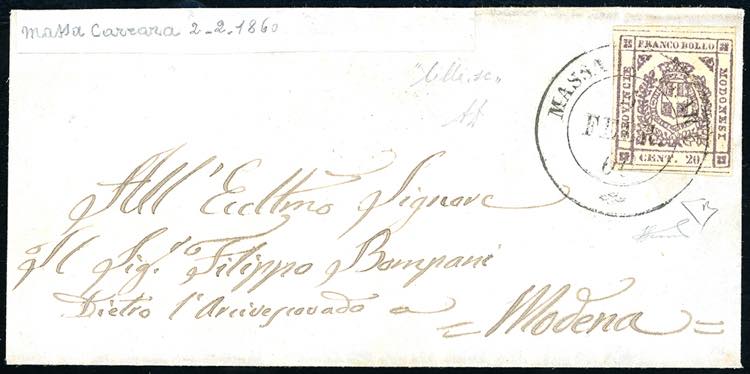 Massa Carrara 2-2-1860
FRANCO BOLLO
PROVINCIE
MODONESI
CENT. 20
MASSA
FEB
60
All' Ecclmo Signore
Il Sig.r Filippo Bompani
Dietro l'Arcivescovado a
= Modena =